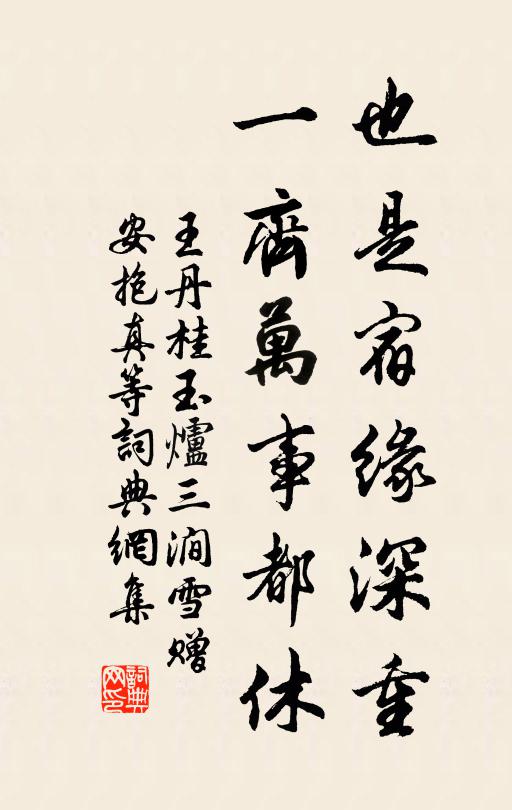 也是宿緣深重
一齊萬事都休
王丹桂玉爐三澗雪贈
安抱真等詞典網集
詞典网印